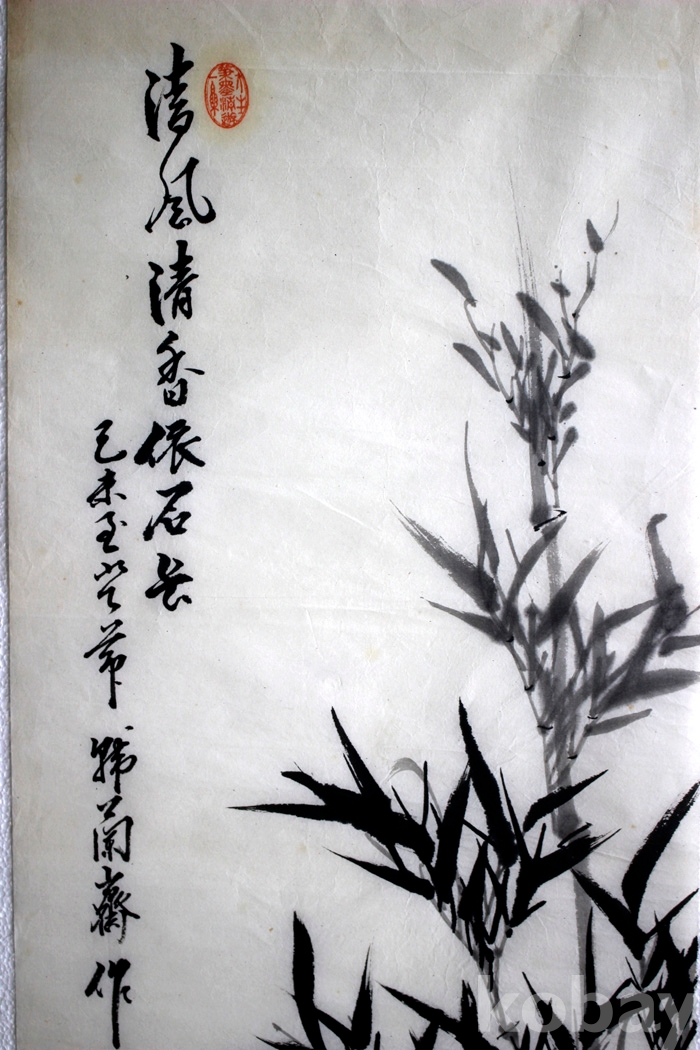 清風清香依石長
己未至節 蘭齋作
kobay